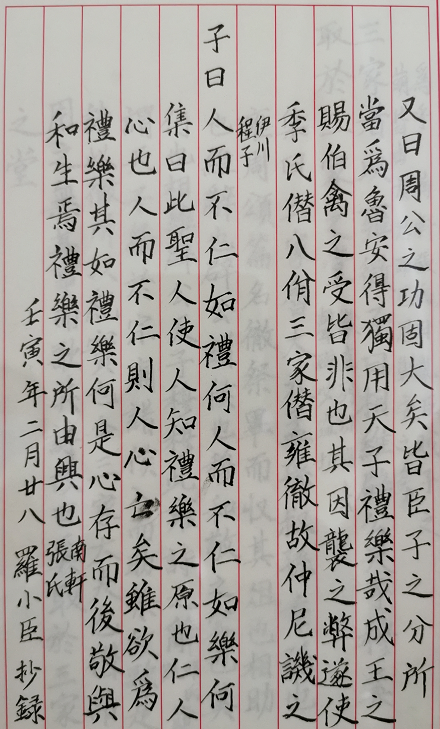 又曰周公之功固大矣皆臣子之分所
當爲魯安得獨用天子禮樂哉成王之
賜伯禽之受皆非也其因襲之弊遂使
季氏僭八佾三家僭雍徹故仲尼譏之
伊川程子
子曰人而不仁如禮何人而不仁如樂何
集曰此聖人使人知禮樂之原也仁人
心也人而不仁則人心亡矣雖欲爲
禮樂其如禮樂何是心存而後敬與
和生焉禮樂之所由興也南軒張氏
壬寅年二月廿八 羅小臣 抄録